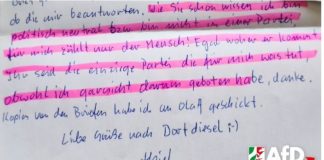 ob die mir beantworten. Wie Sie schon wissen ich bin
politisch neutral bzw. bin nicht in einer Partei,
für mich zählt nur der Mensch! Egal woher er kommt
Ihr seid die einzige Partei die für mich was tut,
obwohl ich garnicht darum gebeten habe, danke.
Kopien von den Briefen habe ich an Olaf geschickt.
Liebe Grüße nach Dortdiesel ;-)
AfD